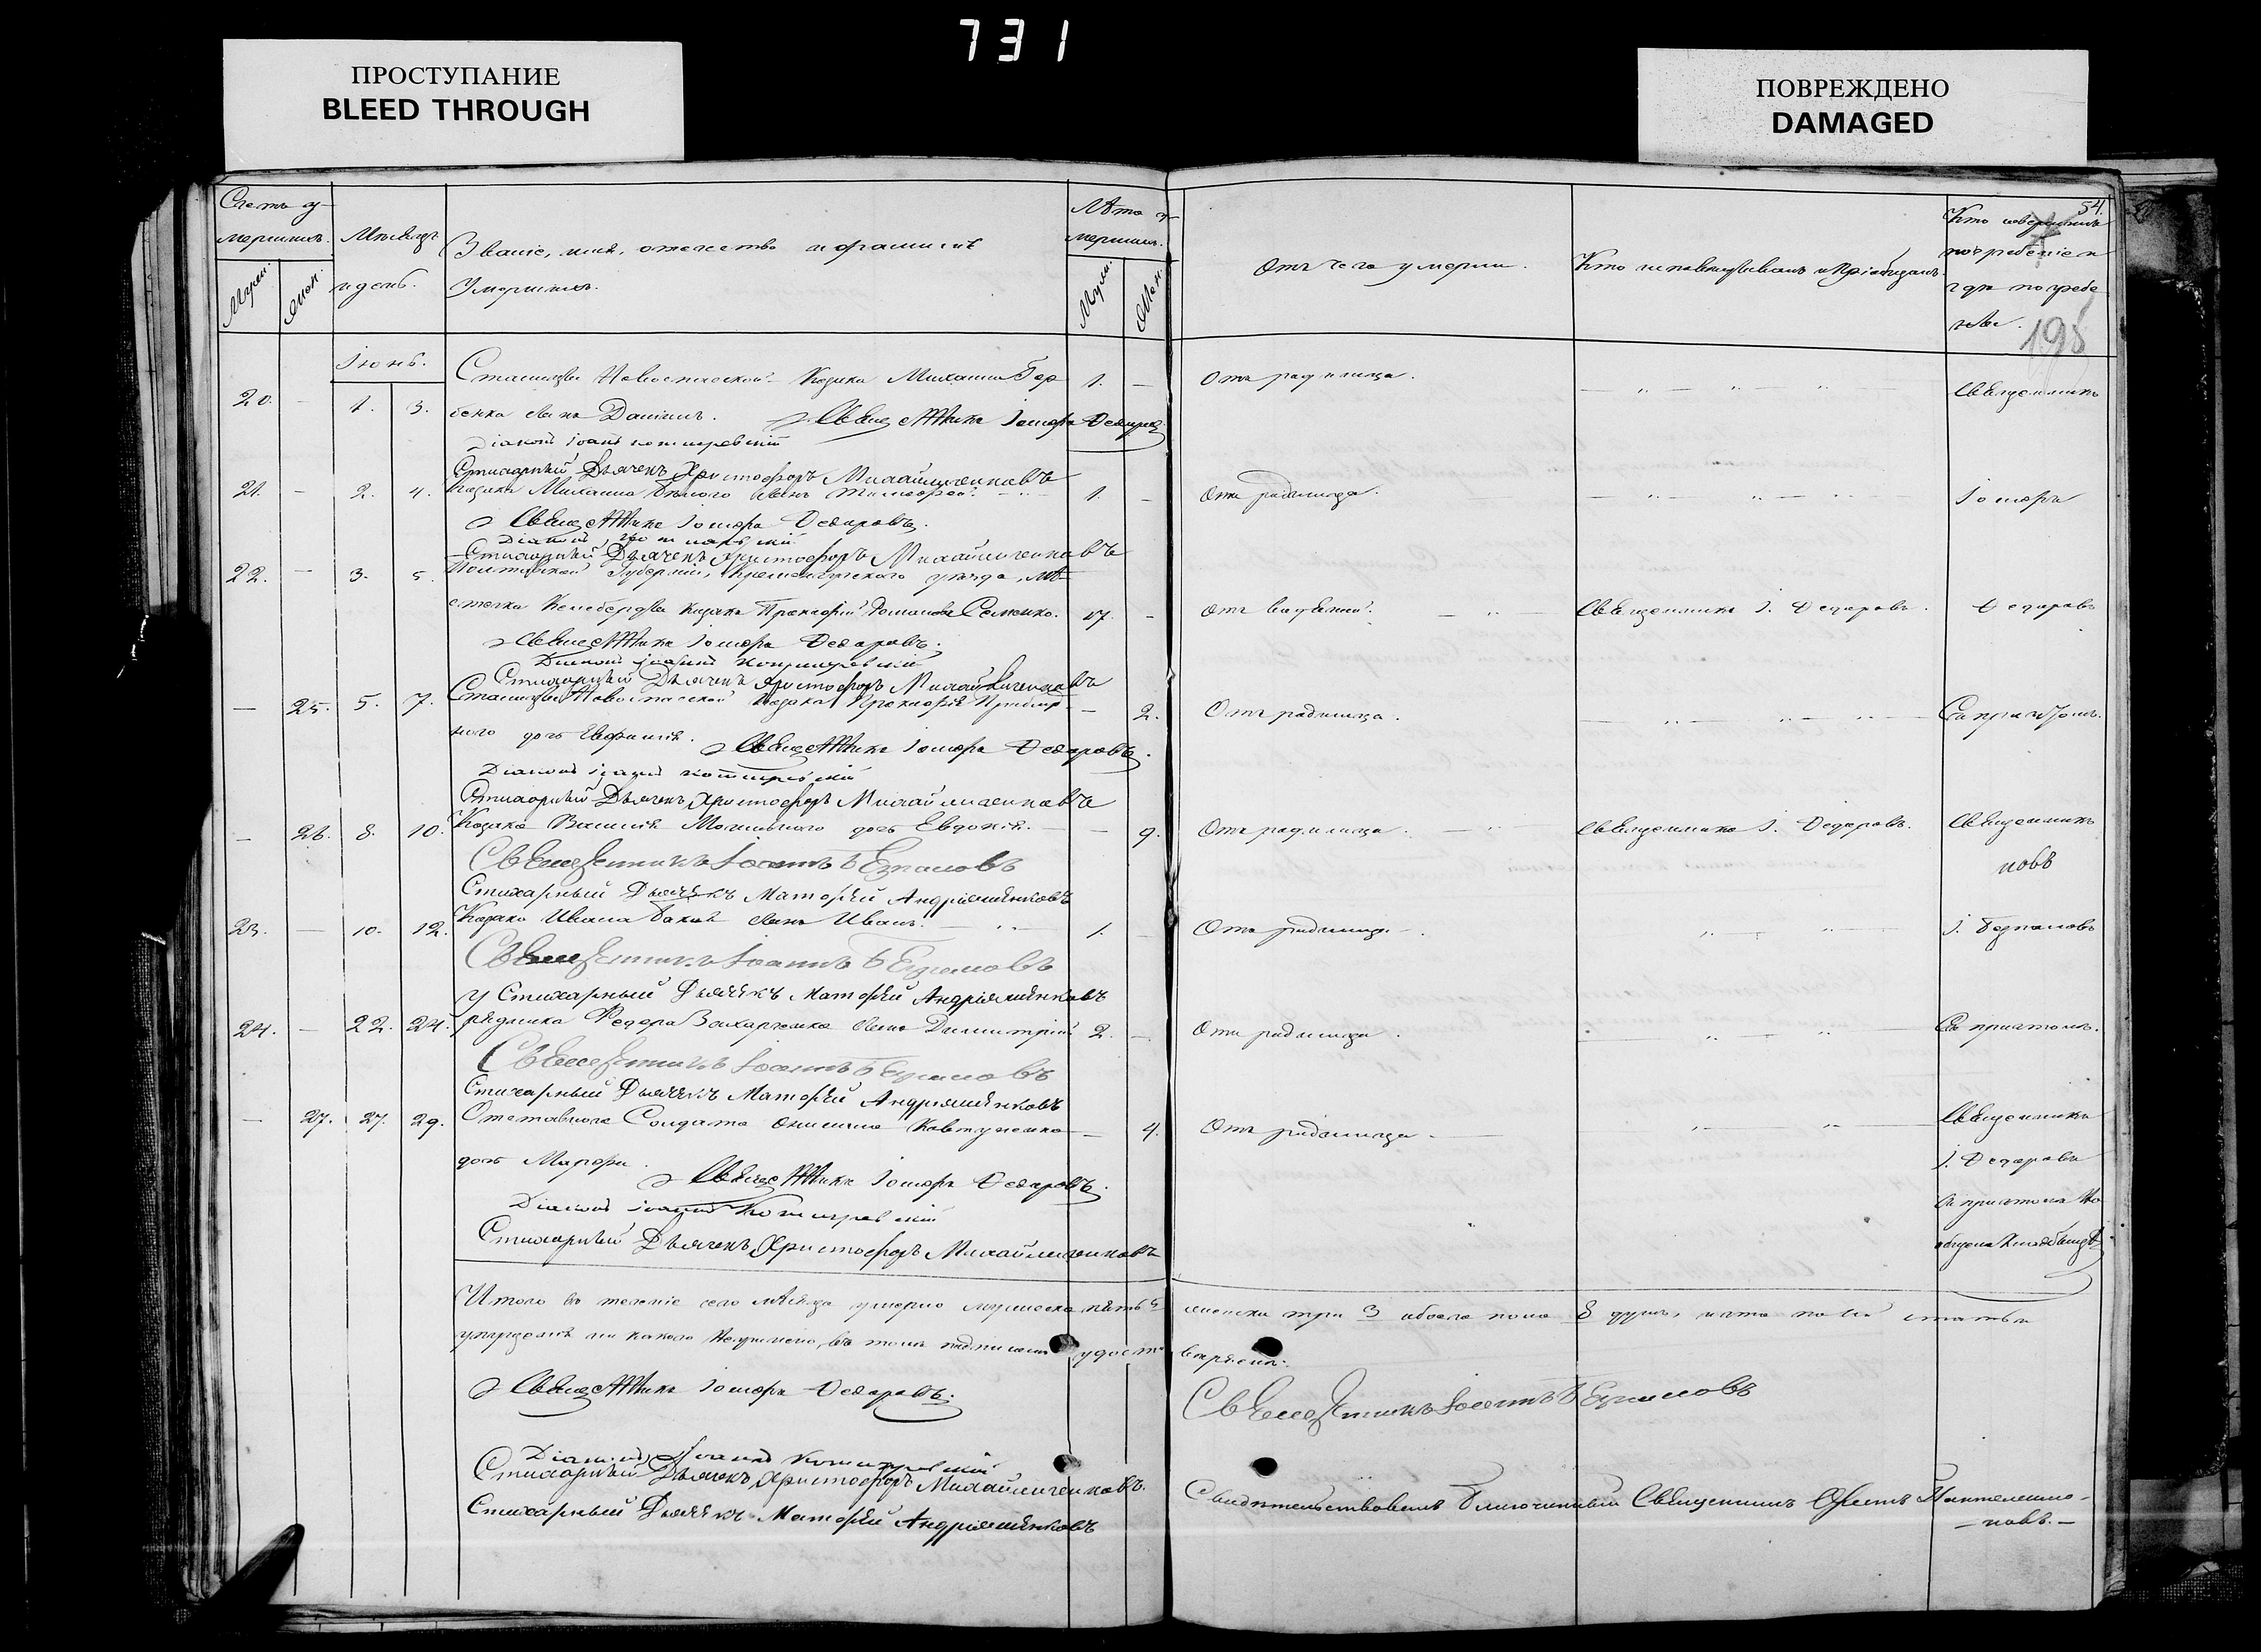 731
ПРОСТУПАНИЕ
BLEED THROUGH
ПОВРЕЖДЕНО
DAMAGED
54.
195
Счетъ у-
мершихъ.
Муж.
Жен.
Мѣсяцъ
и день.
Званіе, имя, отечество и фамилія
Умершихъ.
Лѣта у-
мершихъ.
Муж.
Жен.
Отъ чего умерли.
Кто исповѣдывалъ и Пріобщалъ.
Кто совершилъ
погребеніе и
гдѣ погребе
ны.
Іюнь.
20. — 1. 3. Станицы Новоспаской Козака Михаила Гор 1. — Отъ родимца. Священникъ
бенка сынъ Даніилъ. Священникъ Іосифъ Федоровъ
Діаконъ Іоаннъ
Стихарный Дьячекъ Христофоръ Михайличенковъ
21. — 2. 4. Козака Михаила Бѣлого сынъ Тимофей 1. — Отъ родимца. Іосифъ
Священникъ Іосифъ Федоровъ.
Діаконъ
Стихарный Дьячекъ Христофоръ Михайличенковъ
22. — 3. 5. Полтавской Губерніи, Кременчугского уѣзда, мѣ-
стечка Келеберды козакъ Прокофій Романовъ Семенко. 17. — Отъ водяной. Священникъ І. Федоровъ. Федоровъ
Священникъ Іосифъ Федоровъ.
Діаконъ Іоаннъ
Стихарный Дьячекъ Христофоръ Михайличенковъ
— 25. 5. 7. Станицы Новоспаской Козака Прокофія — 2. Отъ родимца. Съ причтомъ.
ного дочь Евфимія. Священникъ Іосифъ Федоровъ.
Діаконъ Іоаннъ
Стихарный Дьячекъ Христофоръ Михайличенковъ
— 26. 8. 10. Козака Василія дочь Евдокія. — 9. Отъ родимца. Священникъ І. Федоровъ. Священникъ
Священникъ Іоаннъ
Стихарный Дьячекъ Матфей Андріяшенковъ
23. — 10. 12. Козака Ивана сынъ Иванъ. 1. — Отъ родимца.
Священникъ Іоаннъ
Стихарный Дьячекъ Матфей Андріяшенковъ
24. — 22. 24. Урядника Федора Захарченка сынъ Димитрій 2. — Отъ родимца. Съ причтомъ.
Священникъ Іоаннъ
Стихарный Дьячекъ Матфей Андріяшенковъ
— 27. 27. 29. Отставного Солдата Ковтуненка — 4. Отъ родимца. Священникъ
дочь Марфа. Священникъ Іосифъ Федоровъ. І. Федоровъ
Діаконъ Іоаннъ
Стихарный Дьячекъ Христофоръ Михайличенковъ
Итого въ теченіе сего мѣсяца умерло мужеска пять 5 женска три 3 обоего пола 8 душъ, и что по сей статьи
въ томъ подписомъ удостовѣряемъ.
Священникъ Іосифъ Федоровъ.
Священникъ Іоаннъ
Діаконъ Іоаннъ
Стихарный Дьячекъ Христофоръ Михайличенковъ.
Стихарный Дьячекъ Матфей Андріяшенковъ
Свидѣтельствовалъ Благочинный Священникъ Пантелеимо-
-новъ.-